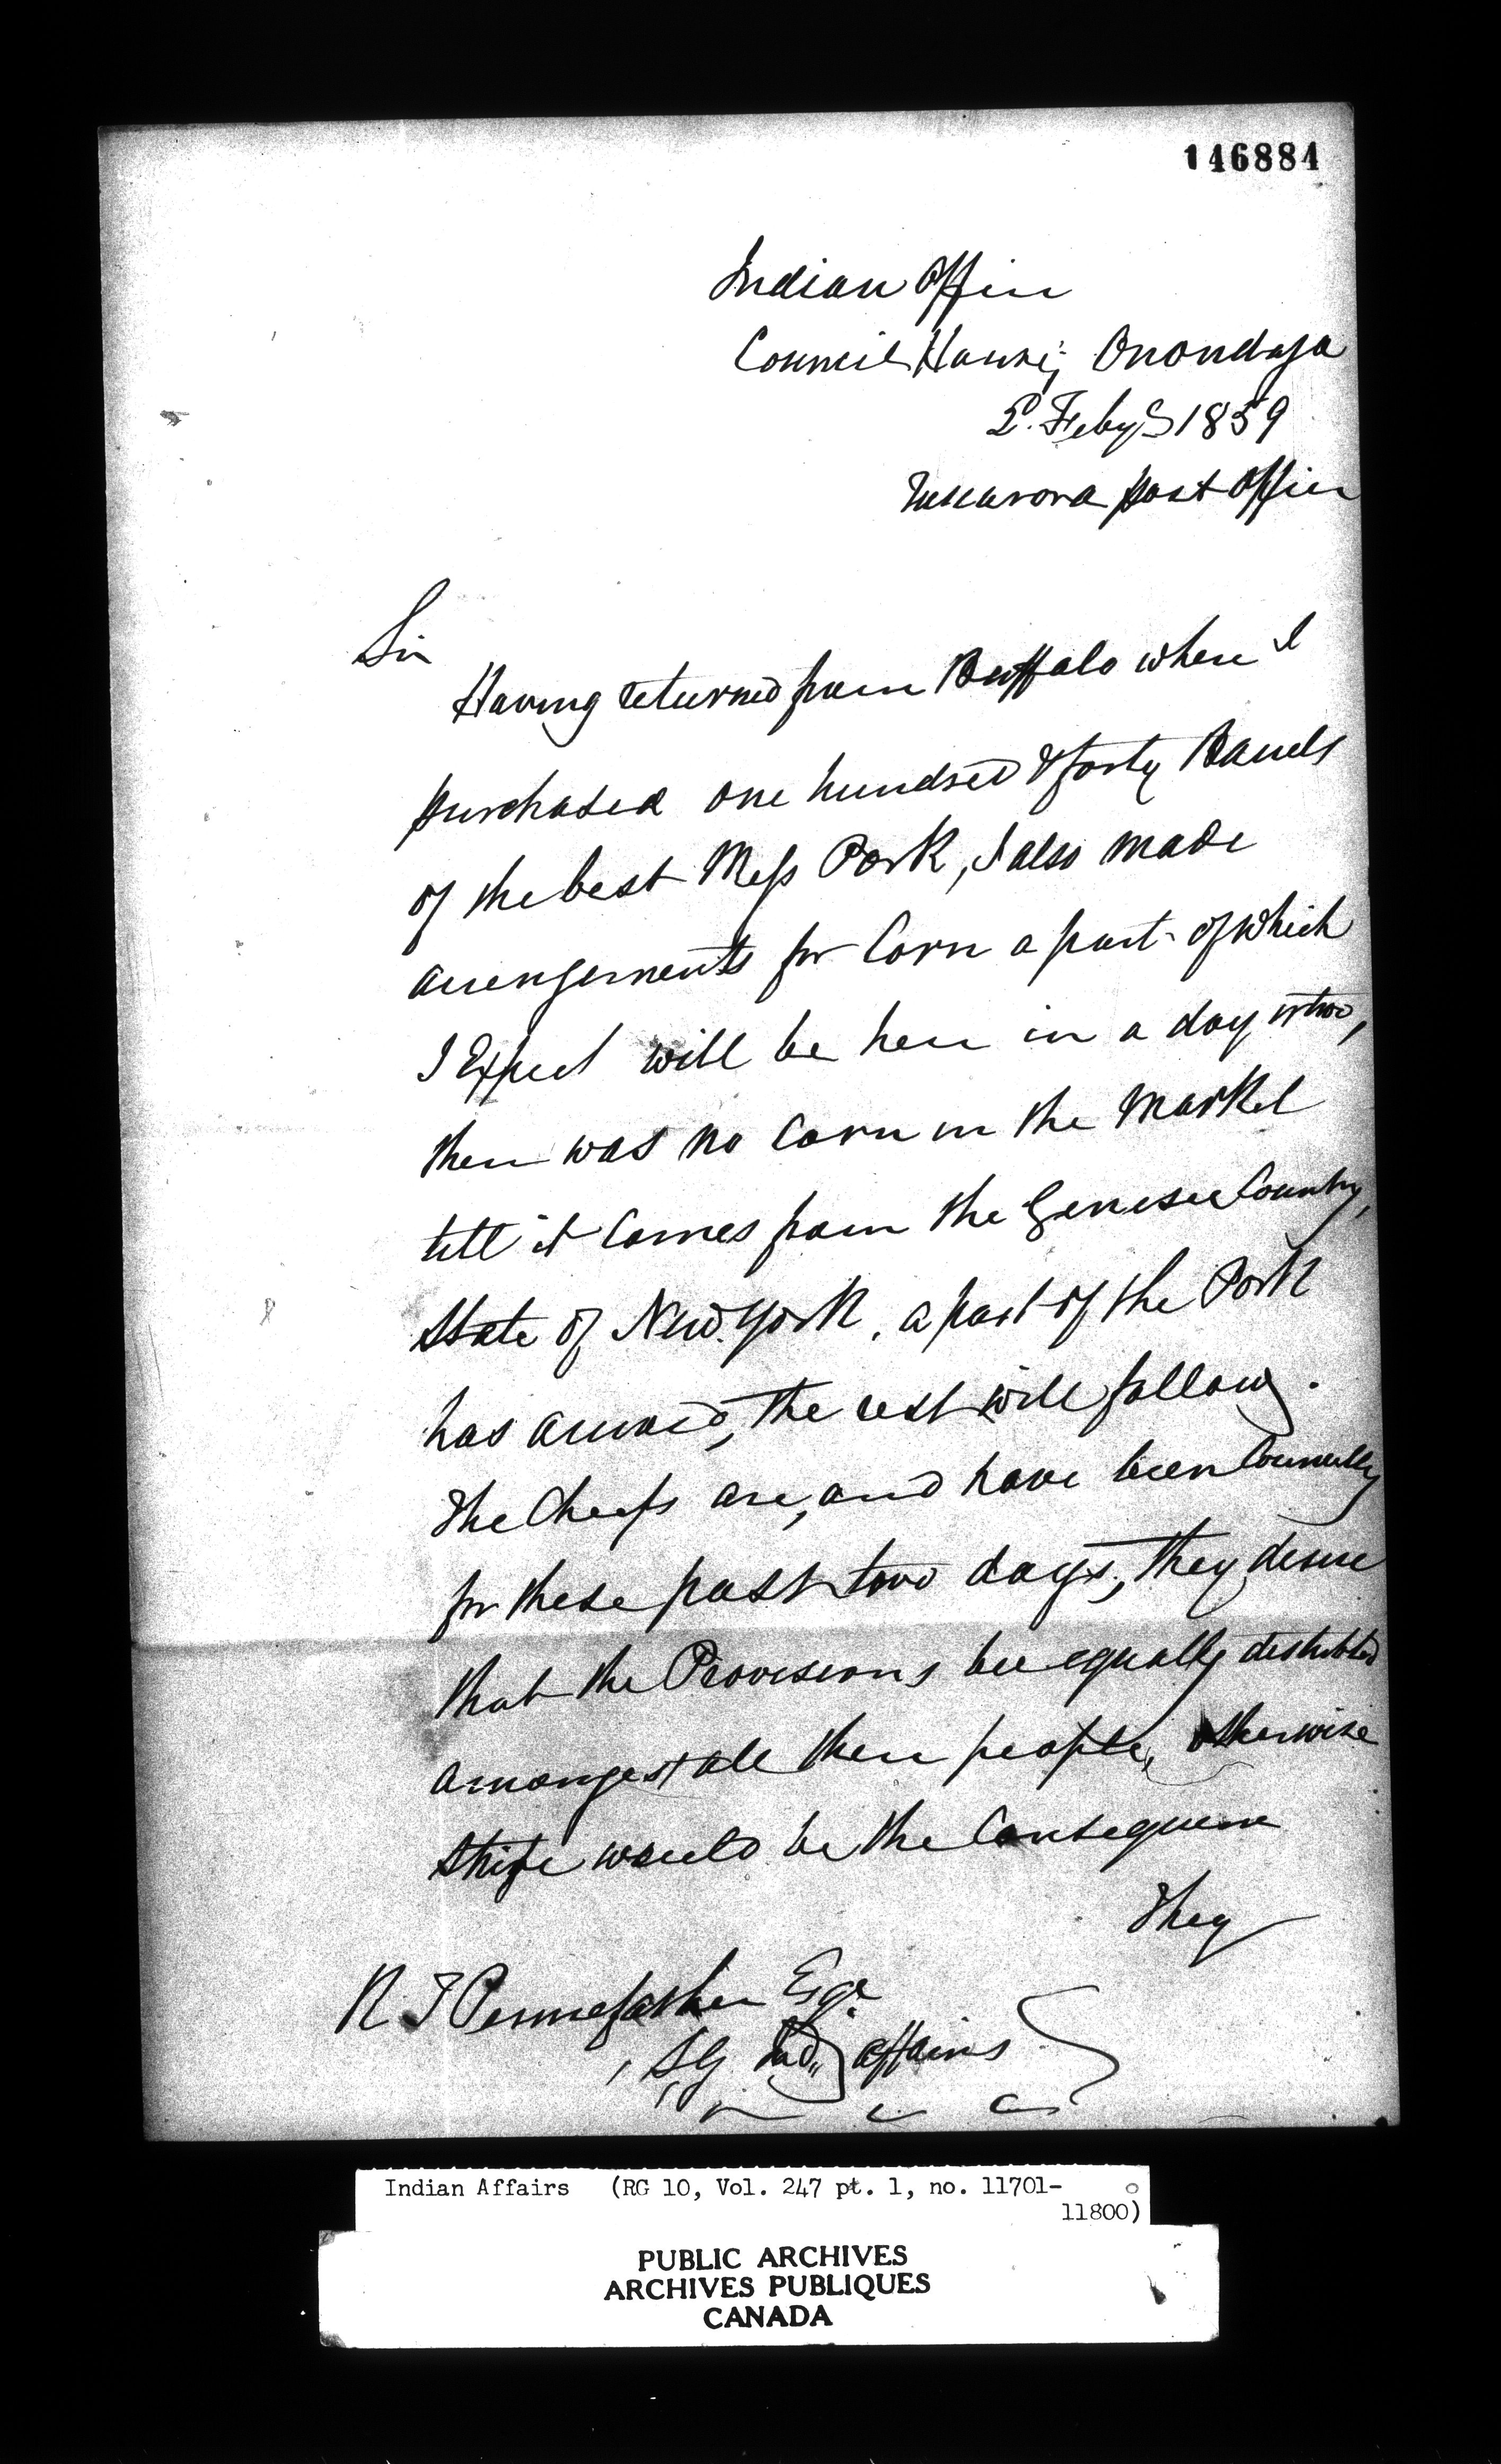 146884
Indian Office
Council House, Onondaga
2. Feby 1859
Tuscarora post office
Sir
Having returned from Buffalo where I
purchased one hundred & forty Barrels
of the best Mess Pork, I also made
arrengements for Corn a part of which
I Expect will be here in a day or two,
there was no Corn in the Market
till it Comes from the Genesee Country,
State of New York. a part of the Pork
has arrived, the rest will follow.
The Cheefs are, and have been Councilly
for these past two days, they desire
that the Provisions be equally distributed
amongest all their people, otherwise
Strife would be the Consequence
They
R T Pennefather Esqr
S G Ind,, affairs
Indian Affairs (RG 10, Vol. 247 pt. 1, no. 11701-
11800)
PUBLIC ARCHIVES
ARCHIVES PUBLIQUES
CANADA